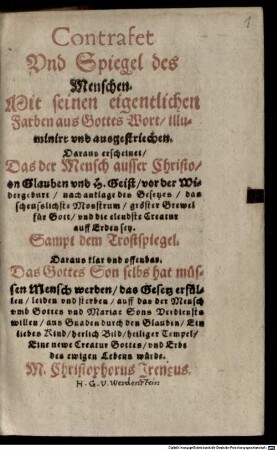 Contrafet
Vnd Spiegel des
Menschen.
Mit seinen eigentlichen
Farben aus Gottes Wort / illu-
minirt vnd ausgestriechen.
Daraus erscheinet /
Das der Mensch ausser Christo /
on Glauben vnd H. Geist / vor der Wi-
dergeburt / nach anklage des Gesetzes / das
scheuslichste Monstrum / gröster Grewel
für Gott / vnd die elendste Creatur
auff Erden sey.
Sampt dem Trostspiegel.
Daraus klar vnd offenbar.
Das Gottes Son selbs hat müs-
sen Mensch werden / das Gesetz erfül-
len / leiden vnd sterben / auff das der Mensch
vmb Gottes vnd Mariae Sons Verdiensts
willen / aus Gnaden durch den Glauben / Ein
liebes Kind / herlich Bild / heiliger Tempel /
Eine newe Creatur Gottes / vnd Erbe
des ewigen Lebens würde.
M. Christophorus Ireneus.
H. G. V. Werdenstein